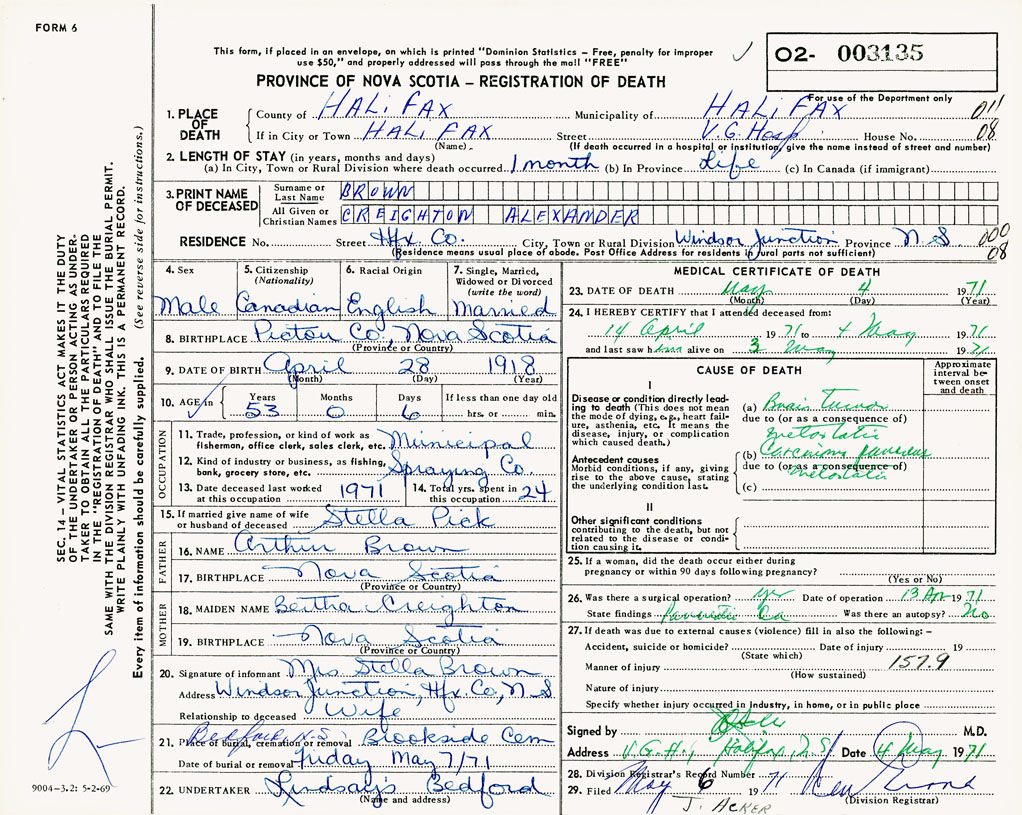 FORM 6
This form, if placed in an envelope, on which is printed "Dominion Statistics – Free, penalty for improper
use $50," and properly addressed will pass through the mail "FREE"
O2- 003135
PROVINCE OF NOVA SCOTIA – REGISTRATION OF DEATH
For use of the Department only
1. PLACE OF DEATH
County of HALIFAX Municipality of HALIFAX 011
If in City or Town HALIFAX Street V.G. Hosp House No. 08
(Name) (If death occurred in a hospital or institution, give the name instead of street and number)
2. LENGTH OF STAY (in years, months and days)
(a) In City, Town or Rural Division where death occurred 1 month (b) In Province Life (c) In Canada (if immigrant)
3. PRINT NAME OF DECEASED
Surname or Last Name BROWN
All Given or Christian Names CREIGHTON ALEXANDER
RESIDENCE No. Street Hfx Co. City, Town or Rural Division Windsor Junction Province N.S 000
(Residence means usual place of abode. Post Office Address for residents in rural parts not sufficient) 08
4. Sex
Male
5. Citizenship (Nationality)
Canadian
6. Racial Origin
English
7. Single, Married, Widowed or Divorced (write the word)
Married
8. BIRTHPLACE Pictou Co., Nova Scotia
(Province or Country)
9. DATE OF BIRTH April 28 1918
(Month) (Day) (Year)
10. AGE in Years Months Days If less than one day old
53 0 6 hrs. or min.
OCCUPATION
11. Trade, profession, or kind of work as fisherman, office clerk, sales clerk, etc. Municipal
12. Kind of industry or business, as fishing, bank, grocery store, etc. Spraying Co.
13. Date deceased last worked at this occupation 1971
14. Total yrs. spent in this occupation 24
15. If married give name of wife or husband of deceased Stella Pick
FATHER
16. NAME Arthur Brown
17. BIRTHPLACE Nova Scotia
(Province or Country)
MOTHER
18. MAIDEN NAME Bertha Creighton
19. BIRTHPLACE Nova Scotia
(Province or Country)
20. Signature of informant Mrs Stella Brown
Address Windsor Junction, Hfx. Co, N.S.
Relationship to deceased Wife
Bedford, N.S.
21. Place of burial, cremation or removal Brookside Cem
Date of burial or removal Friday May 7/71
22. UNDERTAKER Lindsay's Bedford
(Name and address)
MEDICAL CERTIFICATE OF DEATH
23. DATE OF DEATH May 4 1971
(Month) (Day) (Year)
24. I HEREBY CERTIFY that I attended deceased from:
14 April 1971 to 4 May 1971
and last saw him alive on 3 May 1971
CAUSE OF DEATH
Approximate interval between onset and death
I
Disease or condition directly leading to death (This does not mean the mode of dying, e.g., heart failure, asthenia, etc. It means the disease, injury, or complication which caused death.)
(a) Brain Tumor
due to (or as a consequence of)
metastatic
Antecedent causes
Morbid conditions, if any, giving rise to the above cause, stating the underlying condition last.
(b) Carcinoma pancreas
due to (or as a consequence of)
metastatic
(c)
II
Other significant conditions
contributing to the death, but not related to the disease or condition causing it.
25. If a woman, did the death occur either during pregnancy or within 90 days following pregnancy?
(Yes or No)
26. Was there a surgical operation? yes Date of operation 13 Apr 1971
State findings Pancreatic Ca Was there an autopsy? No
27. If death was due to external causes (violence) fill in also the following: –
Accident, suicide or homicide? Date of injury 19
(State which)
Manner of injury 157.9
(How sustained)
Nature of injury
Specify whether injury occurred in industry, in home, or in public place
Signed by M.D.
Address V.G.H., Halifax, N.S. Date 4 May 1971
28. Division Registrar's Record Number
29. Filed May 6 1971
(Division Registrar)
J. ACKER
SEC. 14 – VITAL STATISTICS ACT MAKES IT THE DUTY
OF THE UNDERTAKER OR PERSON ACTING AS UNDERTAKER TO OBTAIN ALL THE PARTICULARS REQUIRED
IN THE "REGISTRATION OF DEATH" AND TO FILE THE
SAME WITH THE DIVISION REGISTRAR WHO SHALL ISSUE THE BURIAL PERMIT.
WRITE PLAINLY WITH UNFADING INK. THIS IS A PERMANENT RECORD.
Every item of information should be carefully supplied. (See reverse side for instructions.)
9004-3.2: 5-2-69